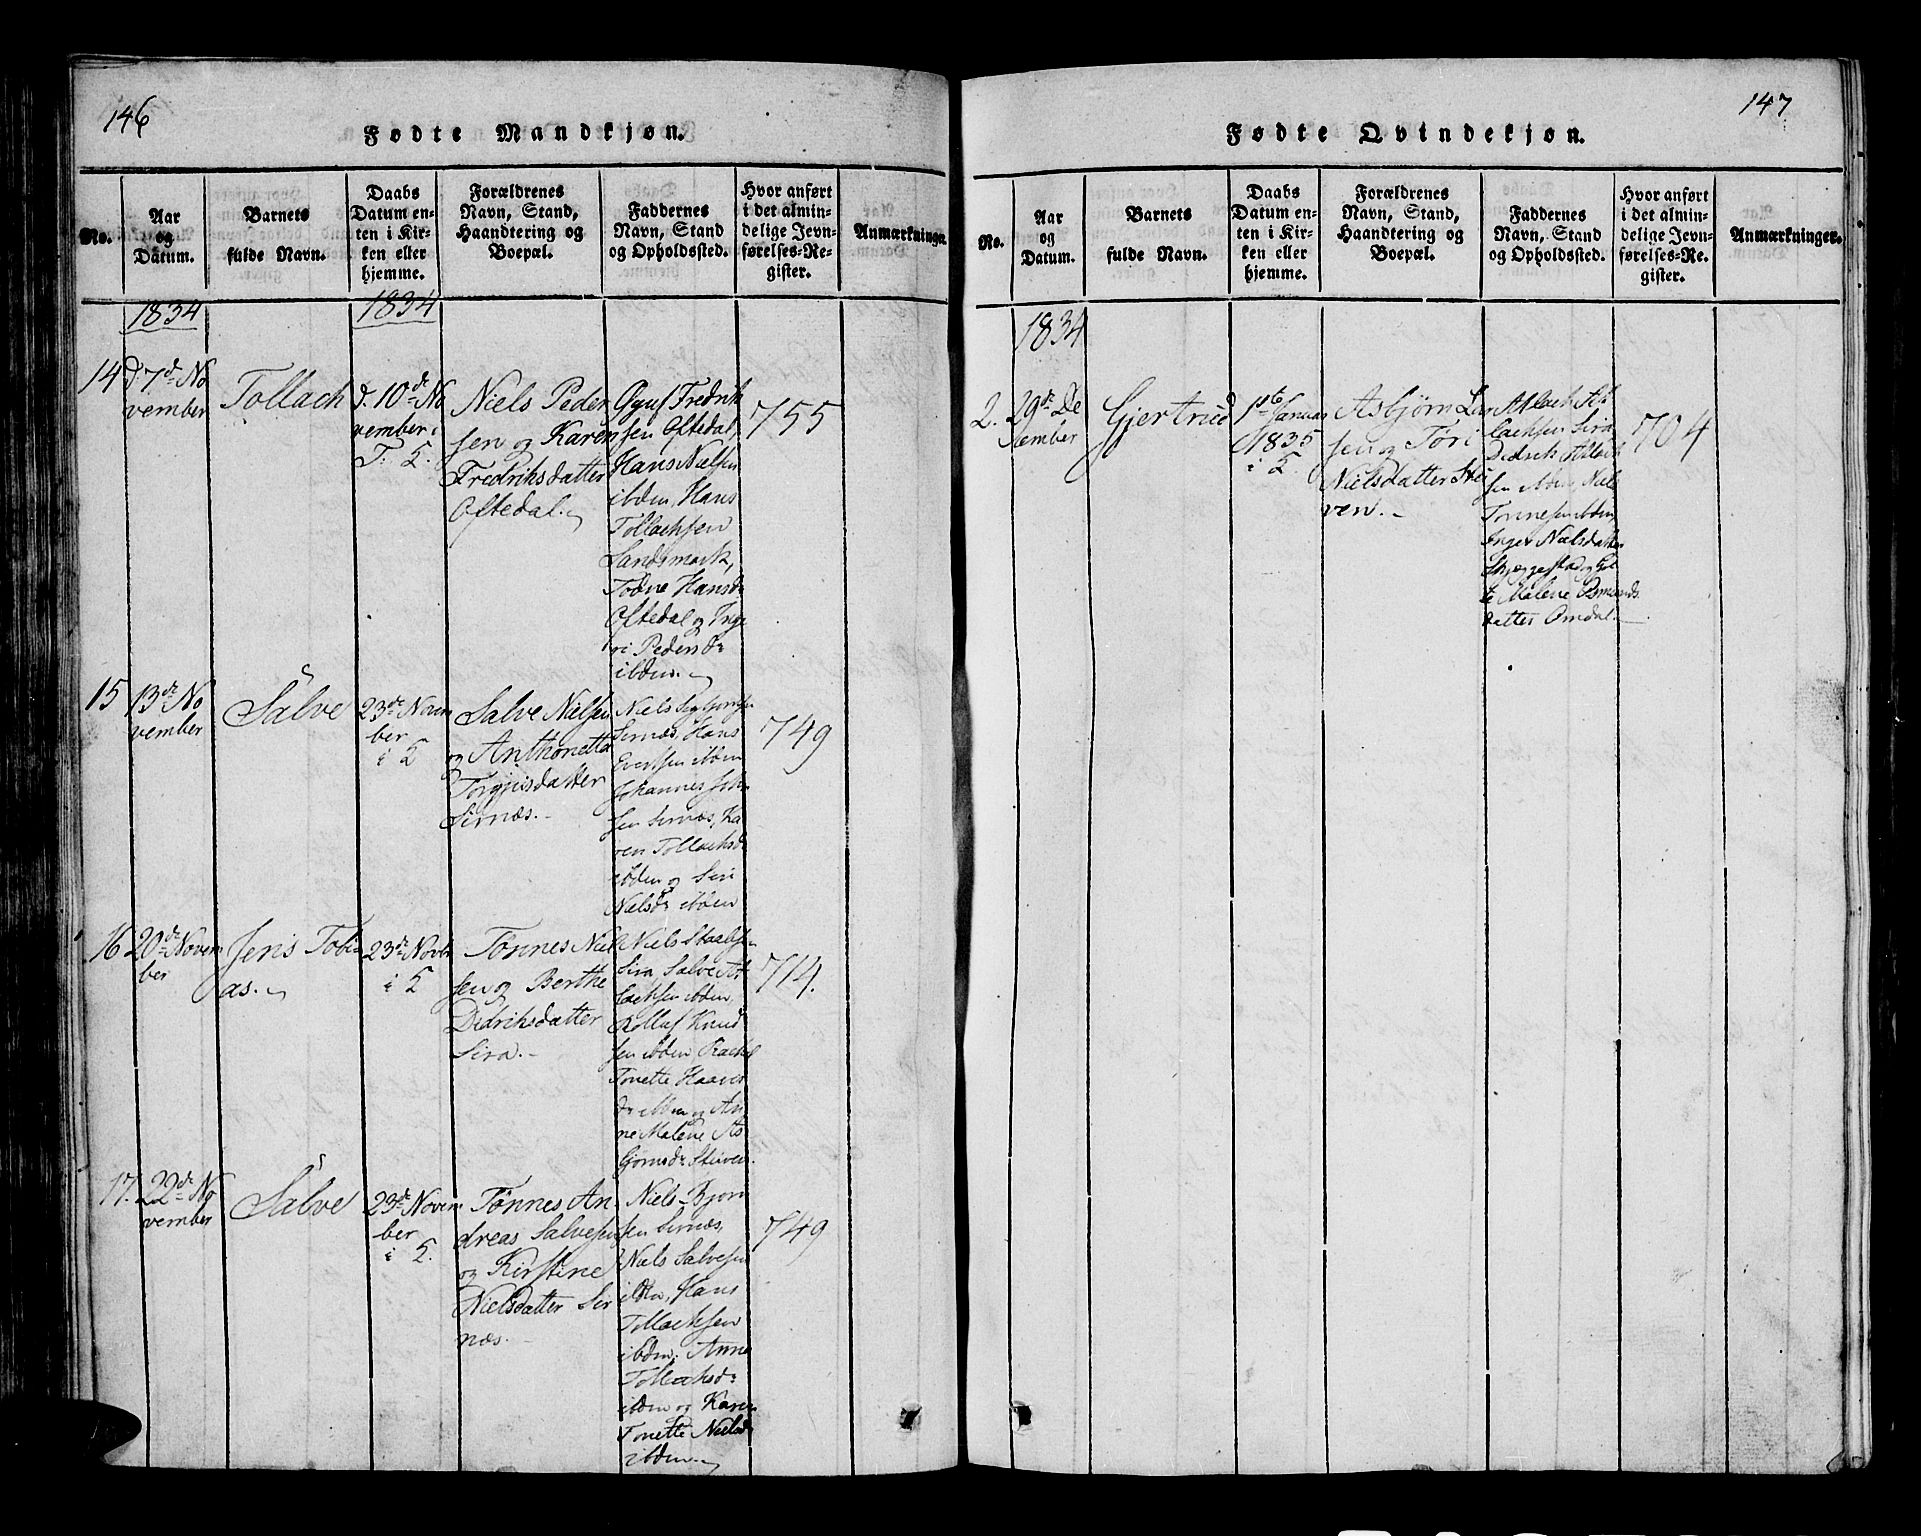 146
Fødte Mandkjøn.
No.
Aar
og
Datum.
Barnets
fulde Navn.
Daabs
Datum en-
ten i Kir-
ken eller
hjemme.
Forældrenes
Navn, Stand,
Haandtering og
Boepæl.
Faddernes
Navn, Stand
og Opholdssted.
Hvor anført
i det almin-
delige Jevn-
førelses-Re-
gister.
Anmærkninger.
1834
1834
14
d. 7de No
vember
Tollach
d. 10de No
vember i
T. K.
Niels Peder
sen og Karen
Fredriksdatter
Oftedal.
Ogus Fredrik
sen Oftedal,
Hans Nielsen
ibden, Hans
Tollachsen
Sandsmark,
Todne Hansdr
Oftedal og Ing
ri Pedersdr
ibden.
755
15
13de No
vember
Salve
23de Novem
ber
i K
Salve Nielsen
og Anthonette
Torgjusdatter
Sirnæs.
Niels
Sirnæs, Hans
Evertsen ibden
Johannes Joh
sen Sirnæs, Ka
ren Tollachsd
ibden og Siri
Nielsdr ibden
749
16
20de Novem
ber
Jens Tobi
as.
23de Novbr
i K
Tønnes Niel
sen og Berthe
Didriksdatter
Sira.
Niels Staalsen
Sira, Salve At
lachsen ibden,
Rolluf Knud
sen ibden Rachel
Tonette Haaver
dr ibden og An
ne Malene As
bjørnsdr Stuven.
714.
17.
22de No
vember
Salve
23de Novem
ber
i K.
Tønnes An
dreas Salvesen
og Kirstine
Nielsdatter Sir
næs.
Niels Bjørn
sen Sirnæs,
Niels Salvesen
ibdn, Hans
Tollachsen
ibden, Anne
Tollachsdr
ibden og Karen
Tonette Nielsd
ibden.
749
147
Fødte Qvindekjøn.
No.
Aar
og
Datum.
Barnets
fulde Navn.
Daabs
Datum en-
ten i Kir-
ken eller
hjemme.
Forældrenes
Navn, Stand,
Haandtering og
Boepæl.
Faddernes
Navn, Stand
og Opholdssted.
Hvor anført
i det almin-
delige Jevn-
førelses-Re-
gister.
Anmærkninger.
1834
2.
29de De
cember
Gjertrud
1ste Januar
1835
i K.
Asbjørn Lar
sen og Tori
Nielsdatter Stu
ven.
Atlach At
lachsen Sira
Didrik Atlach
sen ibden, Niels
Tonnesen ibden,
Inger Nielsdatter
Skjeggestad og
Malene Osmunds
datter Omdal.
704